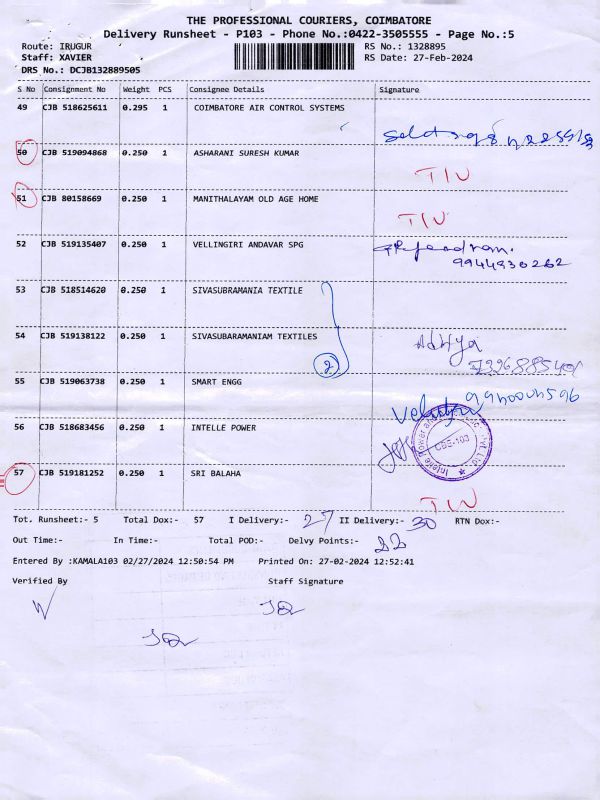 THE PROFESSIONAL COURIERS, COIMBATORE
Delivery Runsheet - P103 - Phone No.:0422-3505555 - Page No.:5
Route: IRUGUR RS No.: 1328895
Staff: XAVIER RS Date: 27-Feb-2024
DRS No.: DCJB132889505
S No Consignment No Weight PCS Consignee Details Signature
49 CJB 518625611 0.295 1 COIMBATORE AIR CONTROL SYSTEMS
50 CJB 519094868 0.250 1 ASHARANI SURESH KUMAR
TIN
51 CJB 80158669 0.250 1 MANITHALAYAM OLD AGE HOME
TIN
52 CJB 519135407 0.250 1 VELLINGIRI ANDAVAR SPG
9944930262
53 CJB 518514620 0.250 1 SIVASUBRAMANIA TEXTILE
54 CJB 519138122 0.250 1 SIVASUBARAMANIAM TEXTILES
2
55 CJB 519063738 0.250 1 SMART ENGG
56 CJB 518683456 0.250 1 INTELLE POWER
CBE-103
57 CJB 519181252 0.250 1 SRI BALAHA
TIN
Tot. Runsheet:- 5 Total Dox:- 57 I Delivery:- 27 II Delivery:- 30 RTN Dox:-
Out Time:- In Time:- Total POD:- Delvy Points:- 22
Entered By :KAMALA103 02/27/2024 12:50:54 PM Printed On: 27-02-2024 12:52:41
Verified By Staff Signature